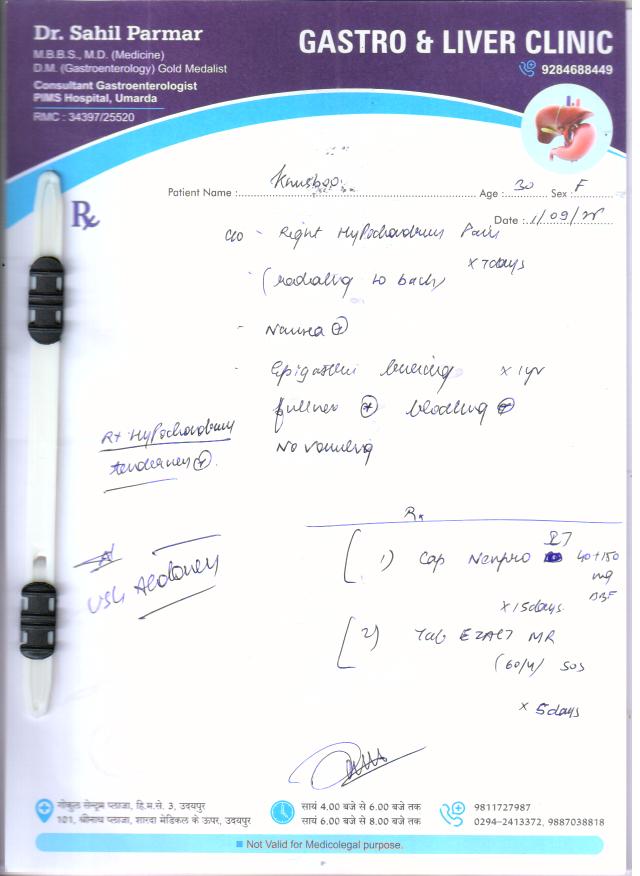 Dr. Sahil Parmar
M.B.B.S., M.D. (Medicine)
D.M. (Gastroenterology) Gold Medalist
Consultant Gastroenterologist
PIMS Hospital, Umarda
RMC : 34397/25520
GASTRO & LIVER CLINIC
9284688449
Patient Name : Khusboo Age : 30 Sex : F
Rx
Date : 1/09/25
c/o - Right Hypochondrium Pain
x 7days
(radiating to back)
- Nausea +
- Epigastric burning x 1yr
fullness + bloating +
No vomiting
Rt Hypochondrium
tenderness +
Rx
1) Cap Nexpro 40+150
mg
BBF
x 15days
USG Abdomen
2) Tab EZACT MR
(60/4) SOS
x 5days
गोकुल सेन्ट्रम प्लाजा, हि.म.से. 3, उदयपुर
101, श्रीनाथ प्लाजा, शारदा मेडिकल के ऊपर, उदयपुर
सायं 4.00 बजे से 6.00 बजे तक
सायं 6.00 बजे से 8.00 बजे तक
9811727987
0294-2413372, 9887038818
Not Valid for Medicolegal purpose.